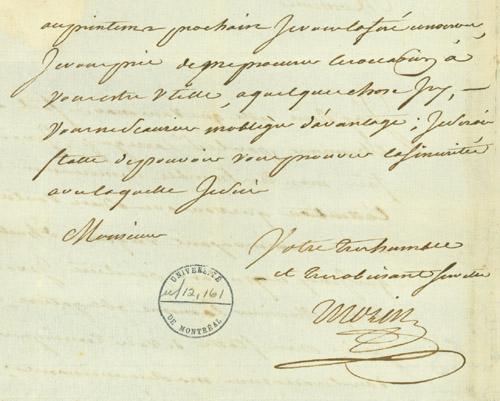 au printems prochain Je vous la feré
Je vous prie de me procurer l'occasion à
vous estre utille, a quelque chose Icy, –
vous ne scaurie mobliger davantage; Je seré
flatté de pouvoir vous prouver la sincerité
avec laquelle Je suis
Monsieur
Votre tres humble
et tres obeissant serviteur
Morin
UNIVERSITÉ
u/12,161
DE MONTRÉAL